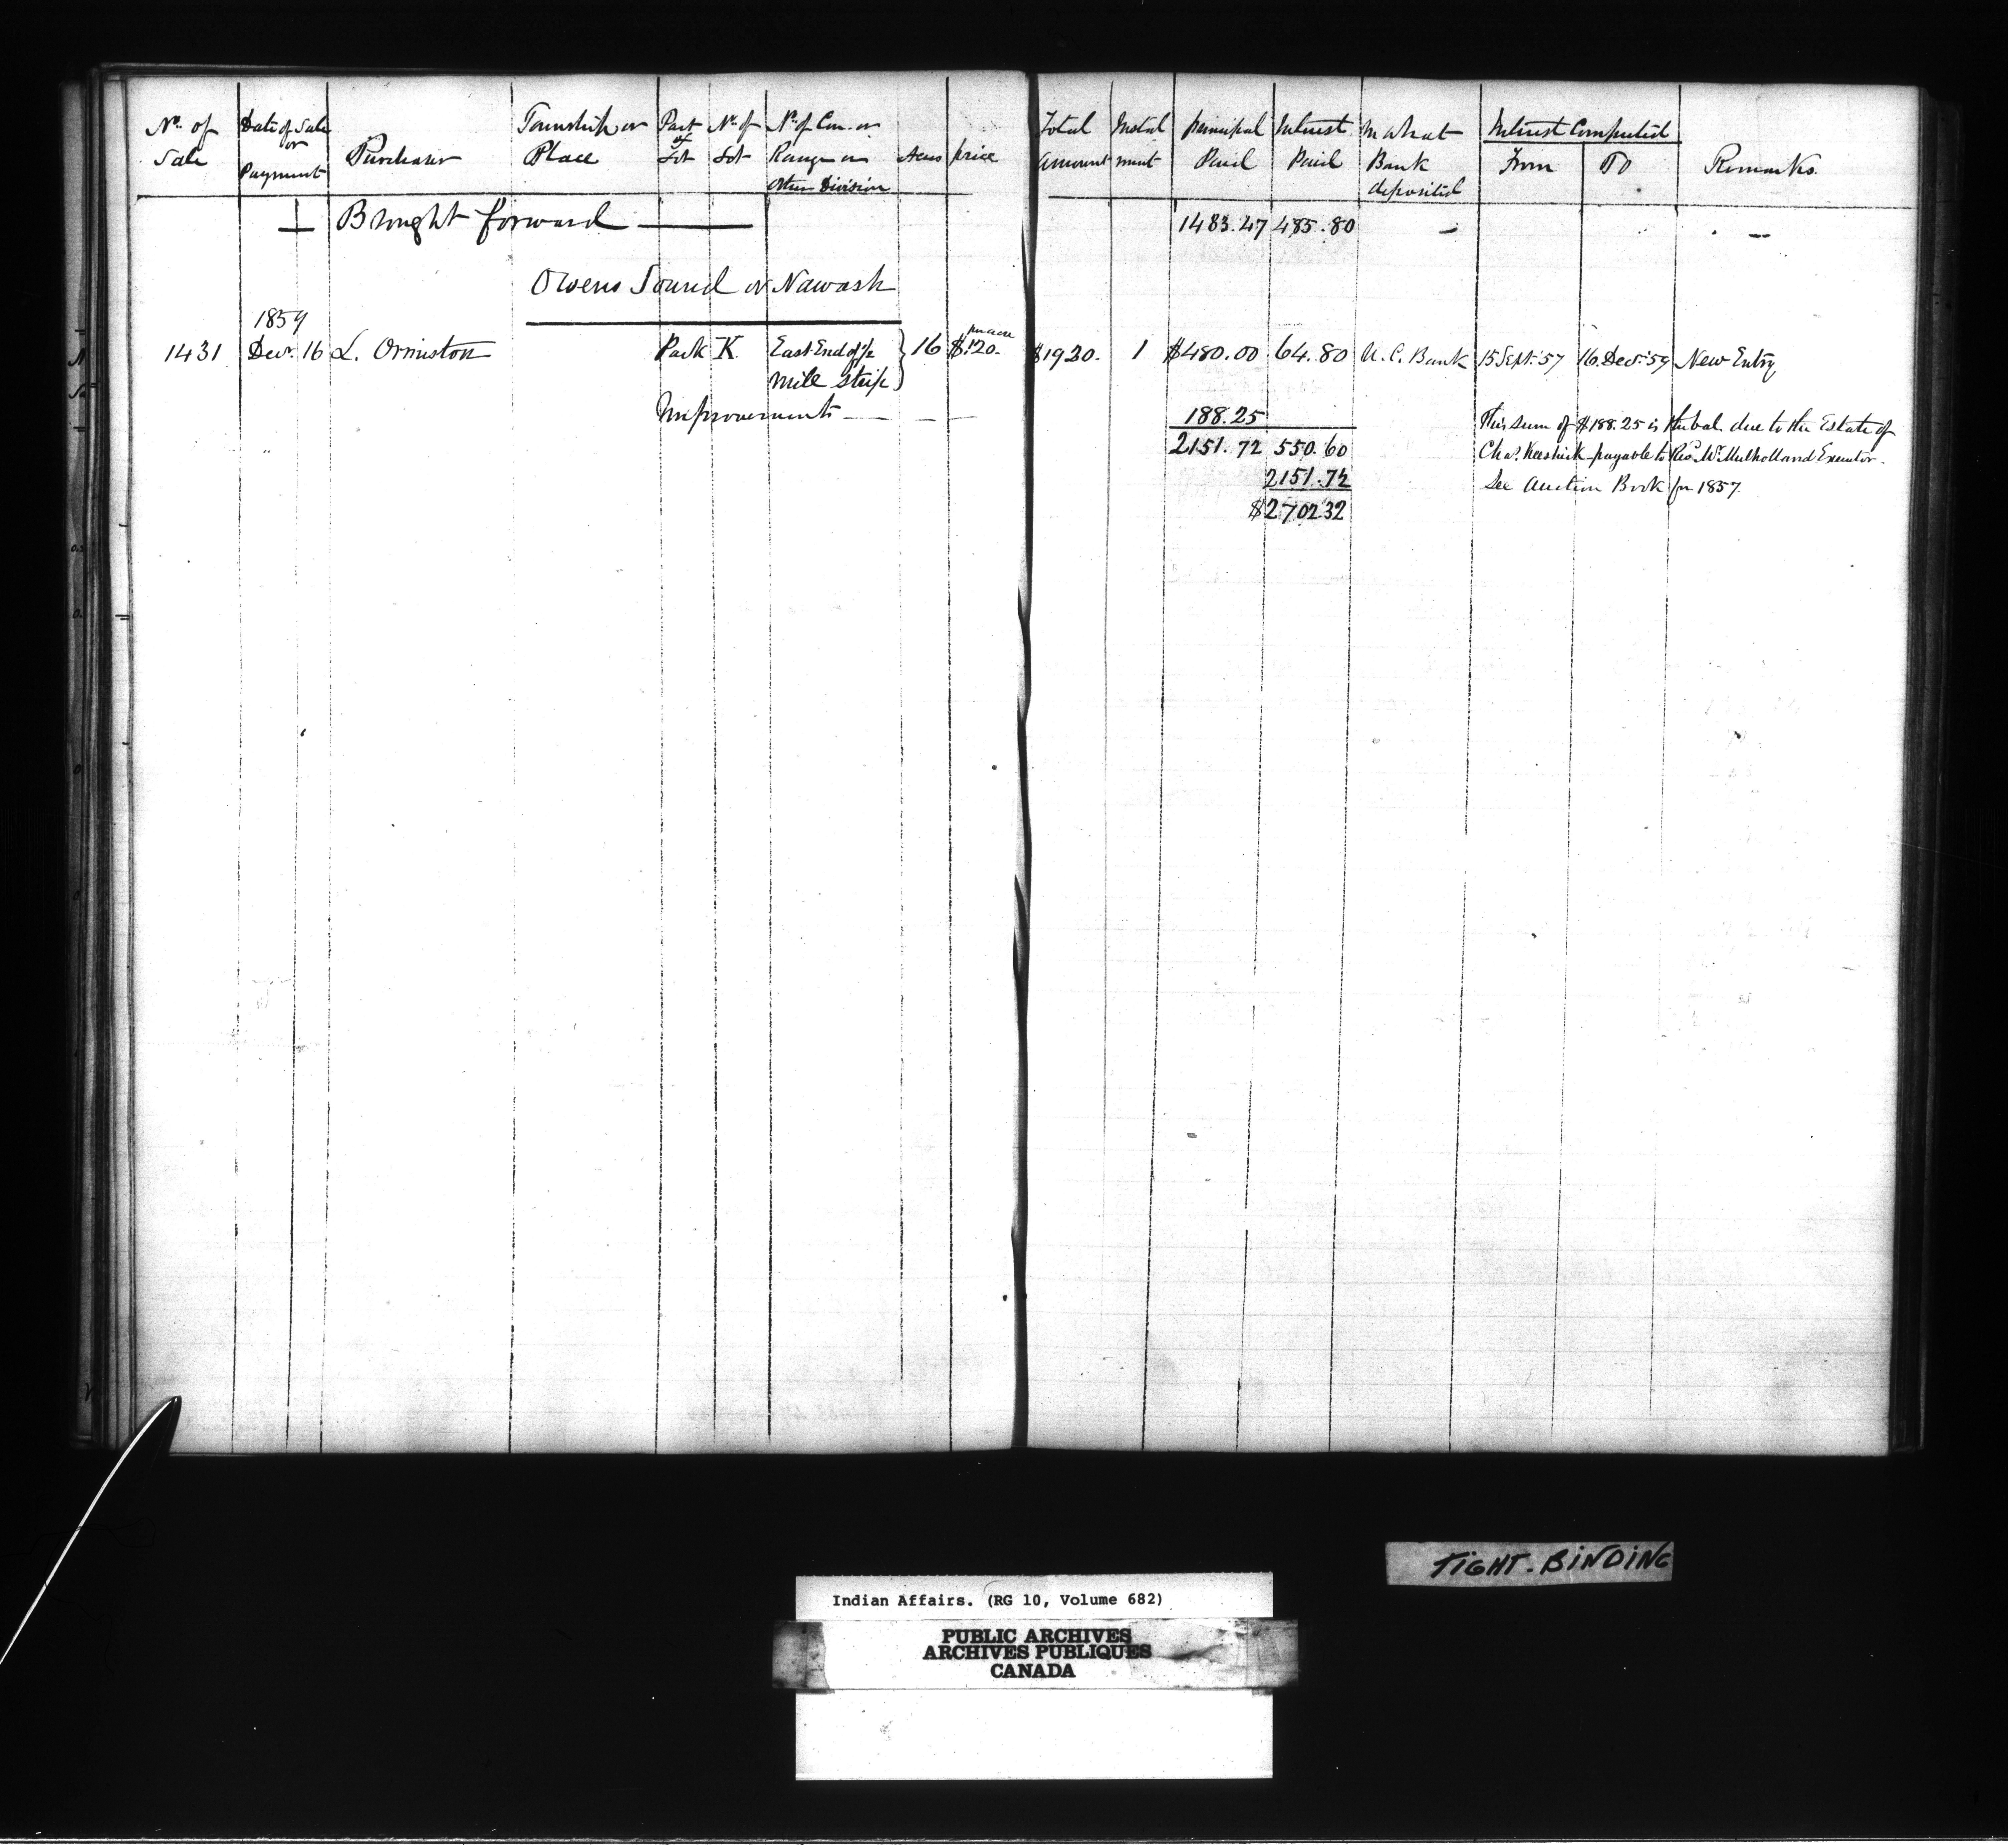 No. of Sale | Date of Sale or Payment | Purchaser | Township or Place | Part of Lot | No. of Lot | No. of Con. or Range or Other Division | Acres | price | Total Amount | Instalment | Principal Paid | Interest Paid | In what Bank deposited | Interest Computed From | To | Remarks.
Brought forward 1483.47 485.80
Owens Sound or Nawash
1859
1431 Decr. 16 L. Ormiston Park K East End of ½ mile strip } 16 $120. per acre $1920. 1 $480.00 64.80 U.C. Bank 15 Sept. '57 16 Decr. '59 New Entry
Improvements 188.25 This sum of $188.25 is the bal. due to the Estate of
2151.72 550.60 Chas. Keeshick payable to Mulholland Executor.
2151.72 See Auction Book for 1857.
$2702 32
TIGHT. BINDING
Indian Affairs. (RG 10, Volume 682)
PUBLIC ARCHIVES
ARCHIVES PUBLIQUES
CANADA